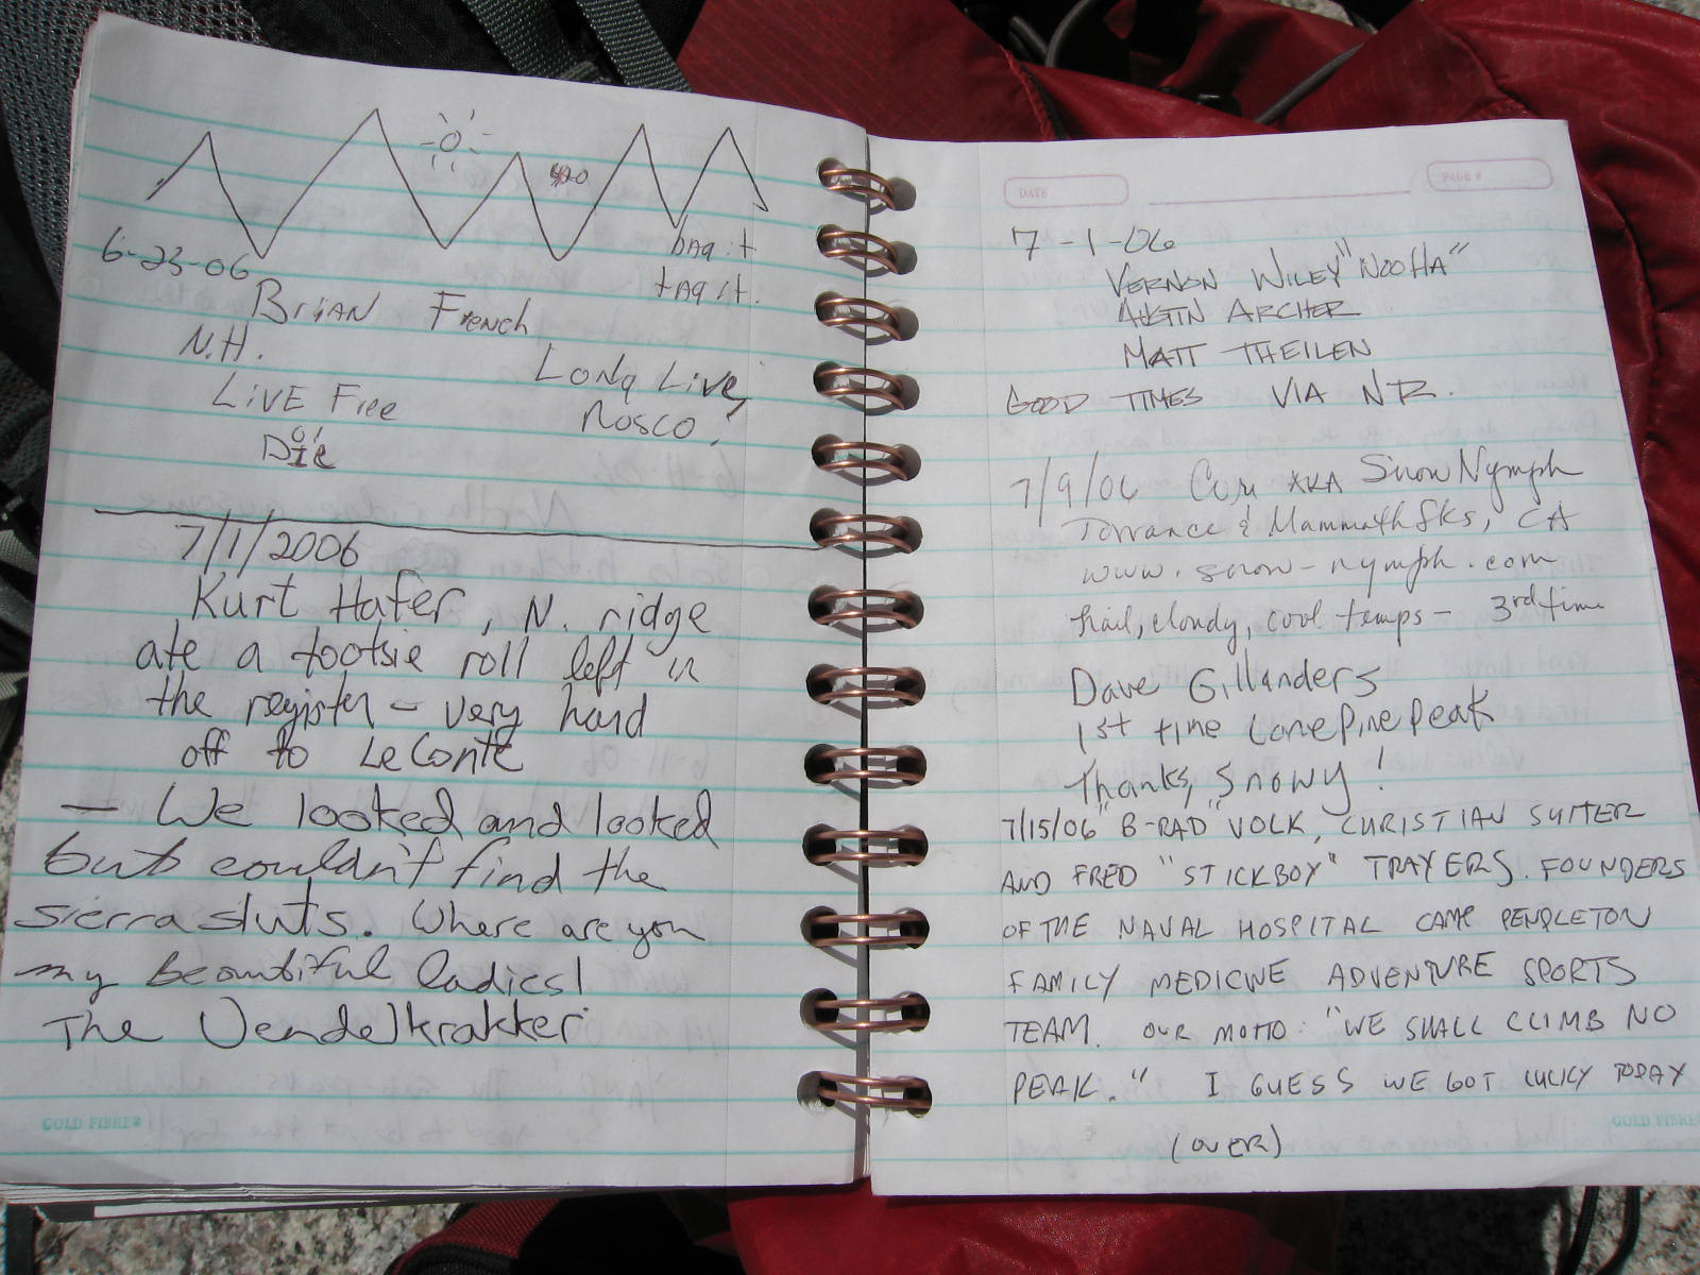 6-23-06
bag it
tag it.
Brian French
N.H.
Long Live
Rosco!
Live Free
or
Die
7/1/2006
Kurt Hafer, N. ridge
ate a tootsie roll left in
the register - very hard
off to LeConte
- We looked and looked
but couldn't find the
sierra sluts. Where are you
my beautiful ladies!
The Vendelkrakker
GOLD FIBRE
DATE
PAGE #
7-1-06
VERNON WILEY "NOOHA"
AUSTIN ARCHER
MATT THEILEN
GOOD TIMES VIA NR.
7/9/06 AKA Snow Nymph
Torrance & Mammoth Lks, CA
www.snow-nymph.com
hail, cloudy, cool temps - 3rd time
Dave Gillanders
1st time Lone Pine Peak
Thanks, Snowy!
7/15/06 "B-RAD" VOLK, CHRISTIAN SUTTER
AND FRED "STICKBOY" TRAYERS. FOUNDERS
OF THE NAVAL HOSPITAL CAMP PENDLETON
FAMILY MEDICINE ADVENTURE SPORTS
TEAM. OUR MOTTO: "WE SHALL CLIMB NO
PEAK." I GUESS WE GOT LUCKY TODAY
(OVER)
GOLD FIBRE